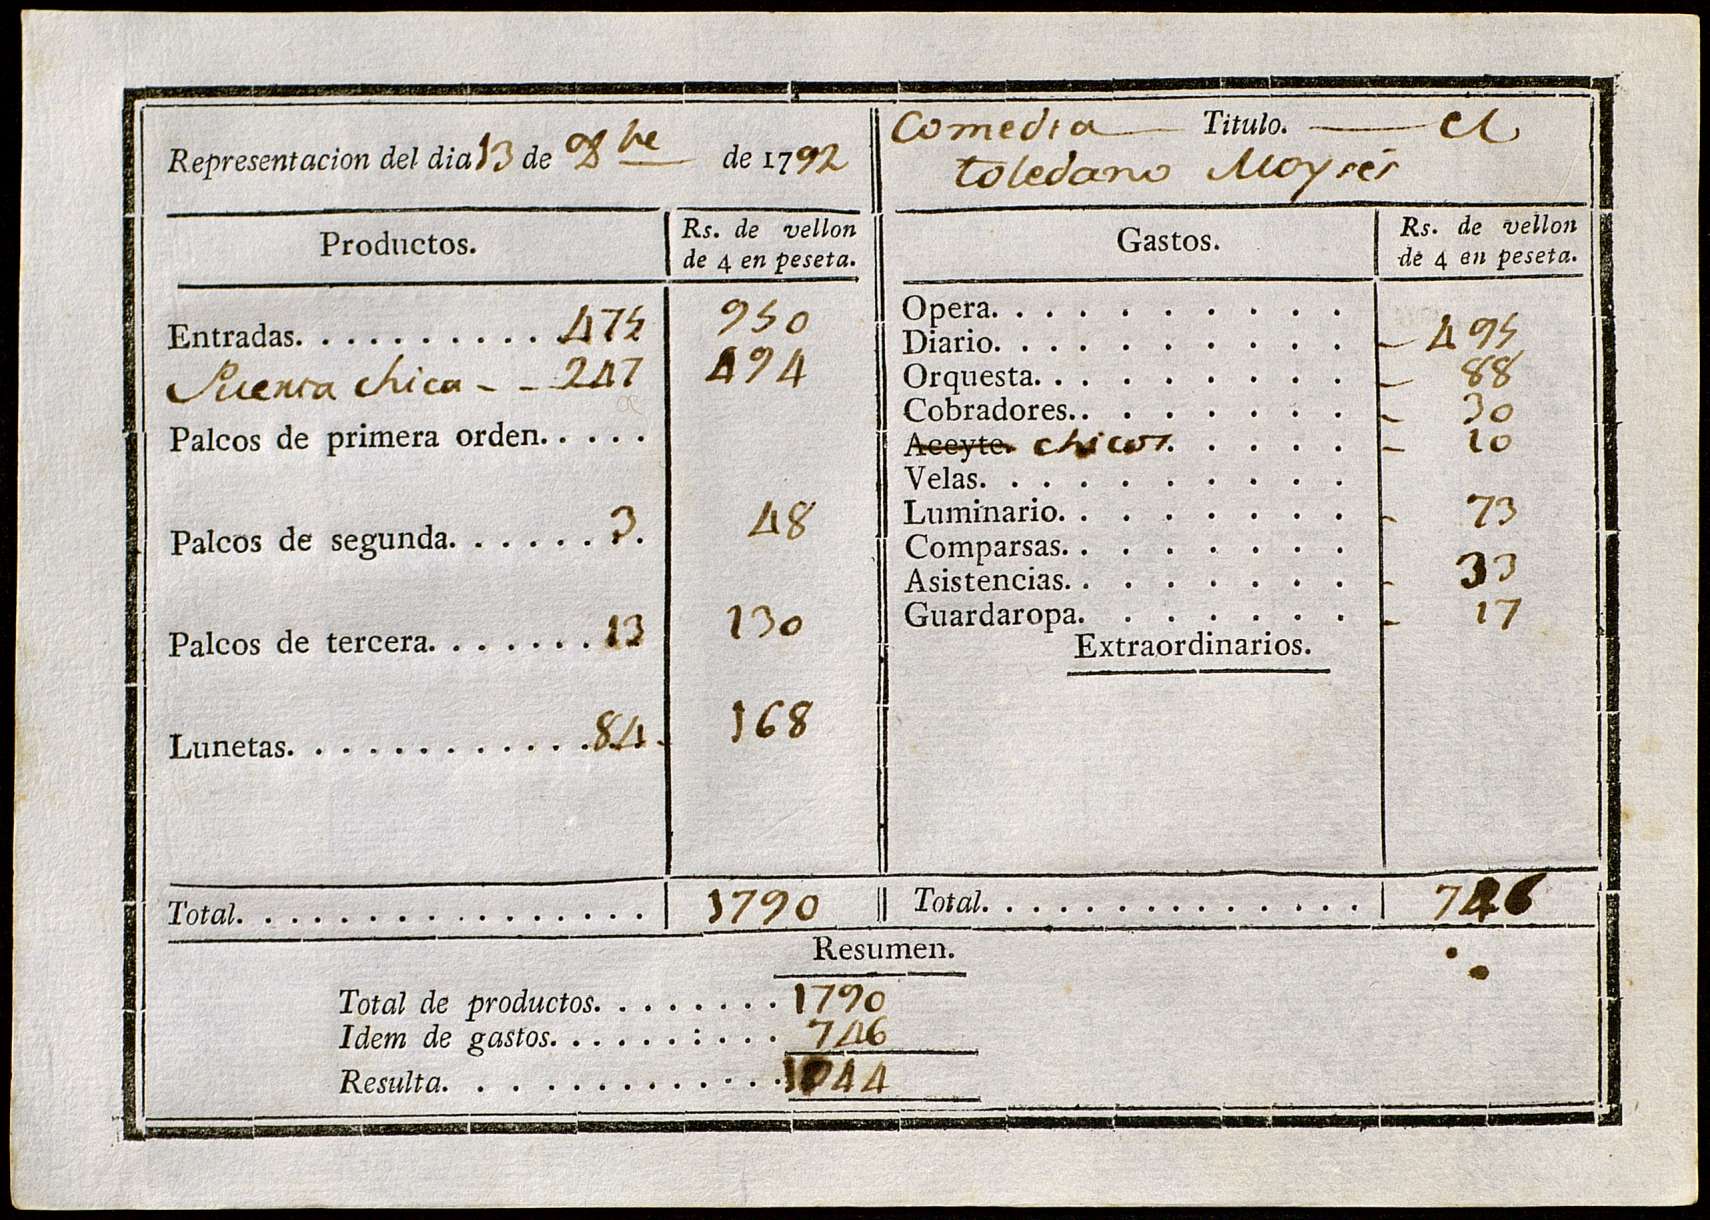 Representacion del dia 13 de 8bre de 1792
Productos. Rs. de vellon de 4 en peseta.
Entradas. . . . . . . . . . 475 950
Puerta chica - - 247 494
Palcos de primera orden. . . . .
Palcos de segunda. . . . . . 3. 48
Palcos de tercera. . . . . . . 13 130
Lunetas. . . . . . . . . . . . 84. 168
Total. . . . . . . . . . . . . . . . 1790
Comedia Titulo. el
toledano Moyses
Gastos. Rs. de vellon de 4 en peseta.
Opera. . . . . . . . . .
Diario. . . . . . . . . . 495
Orquesta. . . . . . . . . 88
Cobradores. . . . . . . . 30
Aceyte. chicos. . . . . . 10
Velas. . . . . . . . . .
Luminario. . . . . . . . 73
Comparsas. . . . . . . .
Asistencias. . . . . . . . 33
Guardaropa. . . . . . . 17
Extraordinarios.
Total. . . . . . . . . . . . . . . 746
Resumen.
Total de productos. . . . . . . . 1790
Idem de gastos. . . . . . : . . . 746
Resulta. . . . . . . . . . . . . 1044